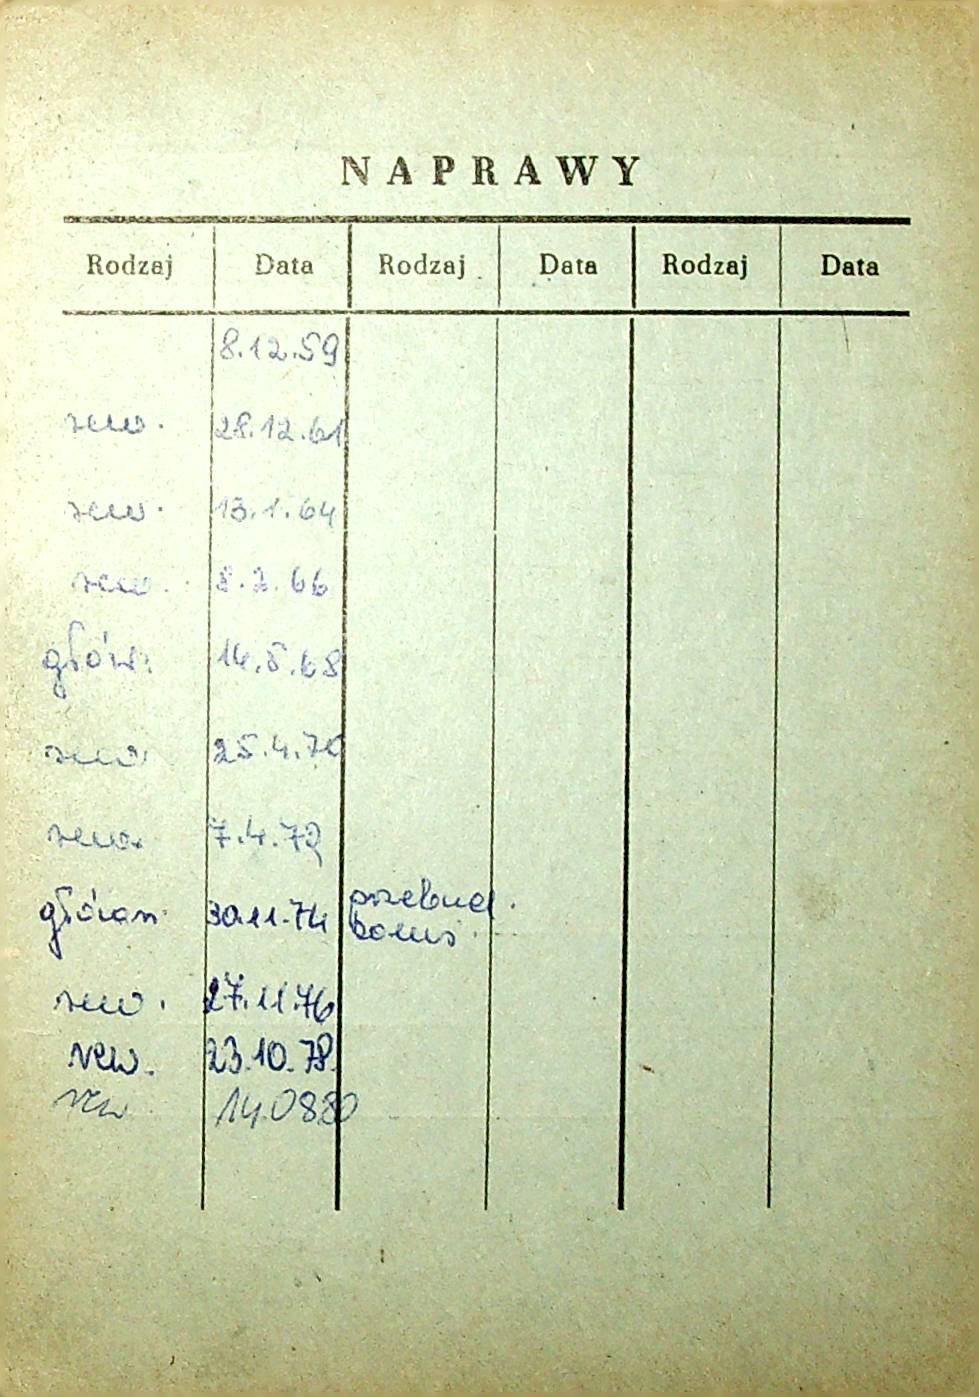 NAPRAWY
Rodzaj Data Rodzaj Data Rodzaj Data
8.12.59
rew. 28.12.61
rew. 13.1.64
rew. 8.2.66
głów. 14.5.68
rew. 25.4.70
rew. 7.4.72
główn. 30.11.74 przebud.
rew. 27.11.76
rew. 23.10.78.
rew 14.08.80